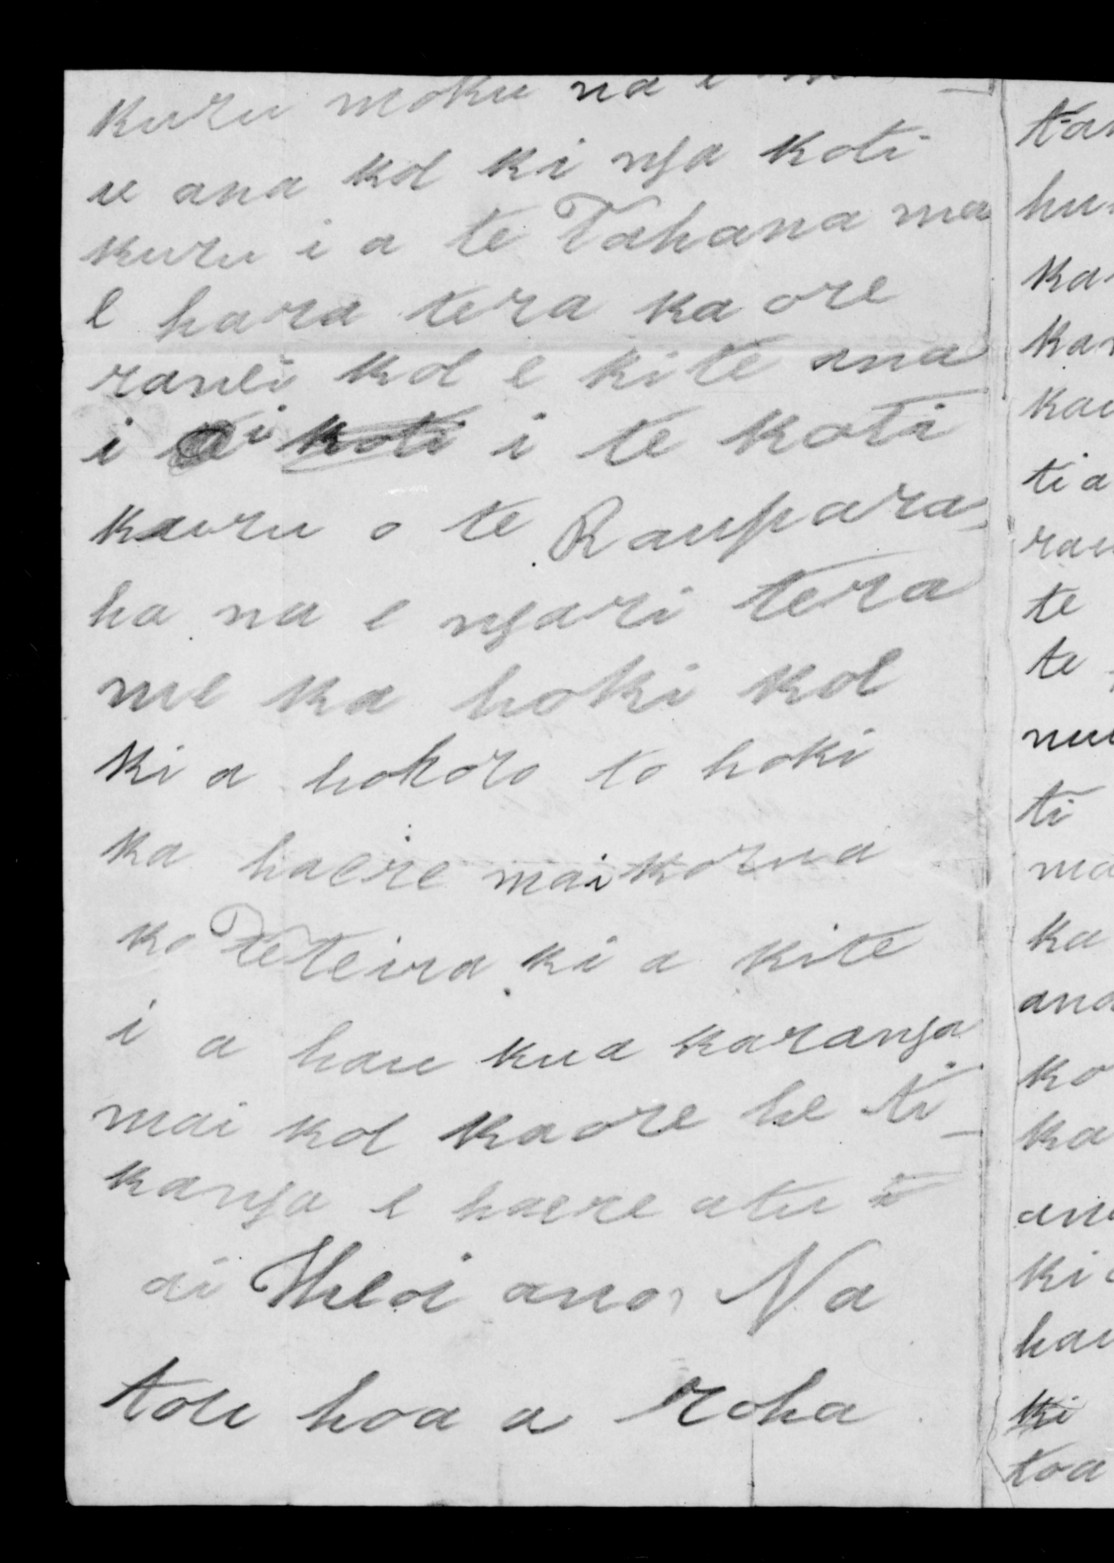 kuru moku na e
u ana koe ki nga koti
kuru i a te Tahana ma
e hara tera ka ore
ranei koe e kite ana
i ai koti i te koti
kauru o te Raupara-
ha na e ngari tera
me ka hoki koe
ki a hohoro to hoki
ka haere mai korua
ko Te teira ki a kite
i a hau kua karanga
mai koe kaore he ti-
kanga e haere atu
ai Heoi ano, Na
tou hoa a roha
ti a
te
te
ti
ka
ko
ka
ki
toa